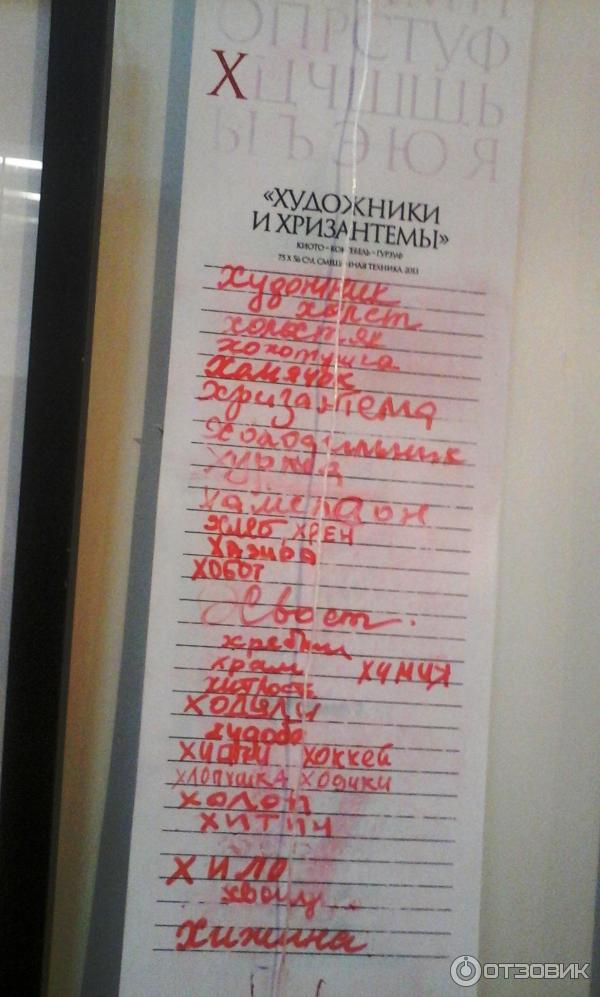 ОПРСТУФ
ХЦЧШЩЬ
ЫЪЭЮЯ
«ХУДОЖНИКИ
И ХРИЗАНТЕМЫ»
КИОТО – КОКТЕБЕЛЬ – ГУРЗУФ
75 X 56 СМ, СМЕШАННАЯ ТЕХНИКА, 2013
художник
холст
холостяк
хохотушка
хомячок
хризантема
холодильник
хурма
хамелеон
хлеб, хрен
ХОБОТ
Хвост.
храм химия
хитрость
худоба
хоккей
хлопушка ходики
холоп
хижина
ОТЗОВИК